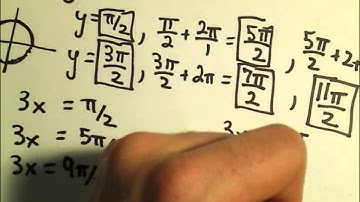 y = π/2 , π/2 + 2π/1 = 5π/2 , 5π/2 + 2
y = 3π/2 , 3π/2 + 2π = 7π/2 , 11π/2
3x = π/2
3x = 5π
3x = 9π/